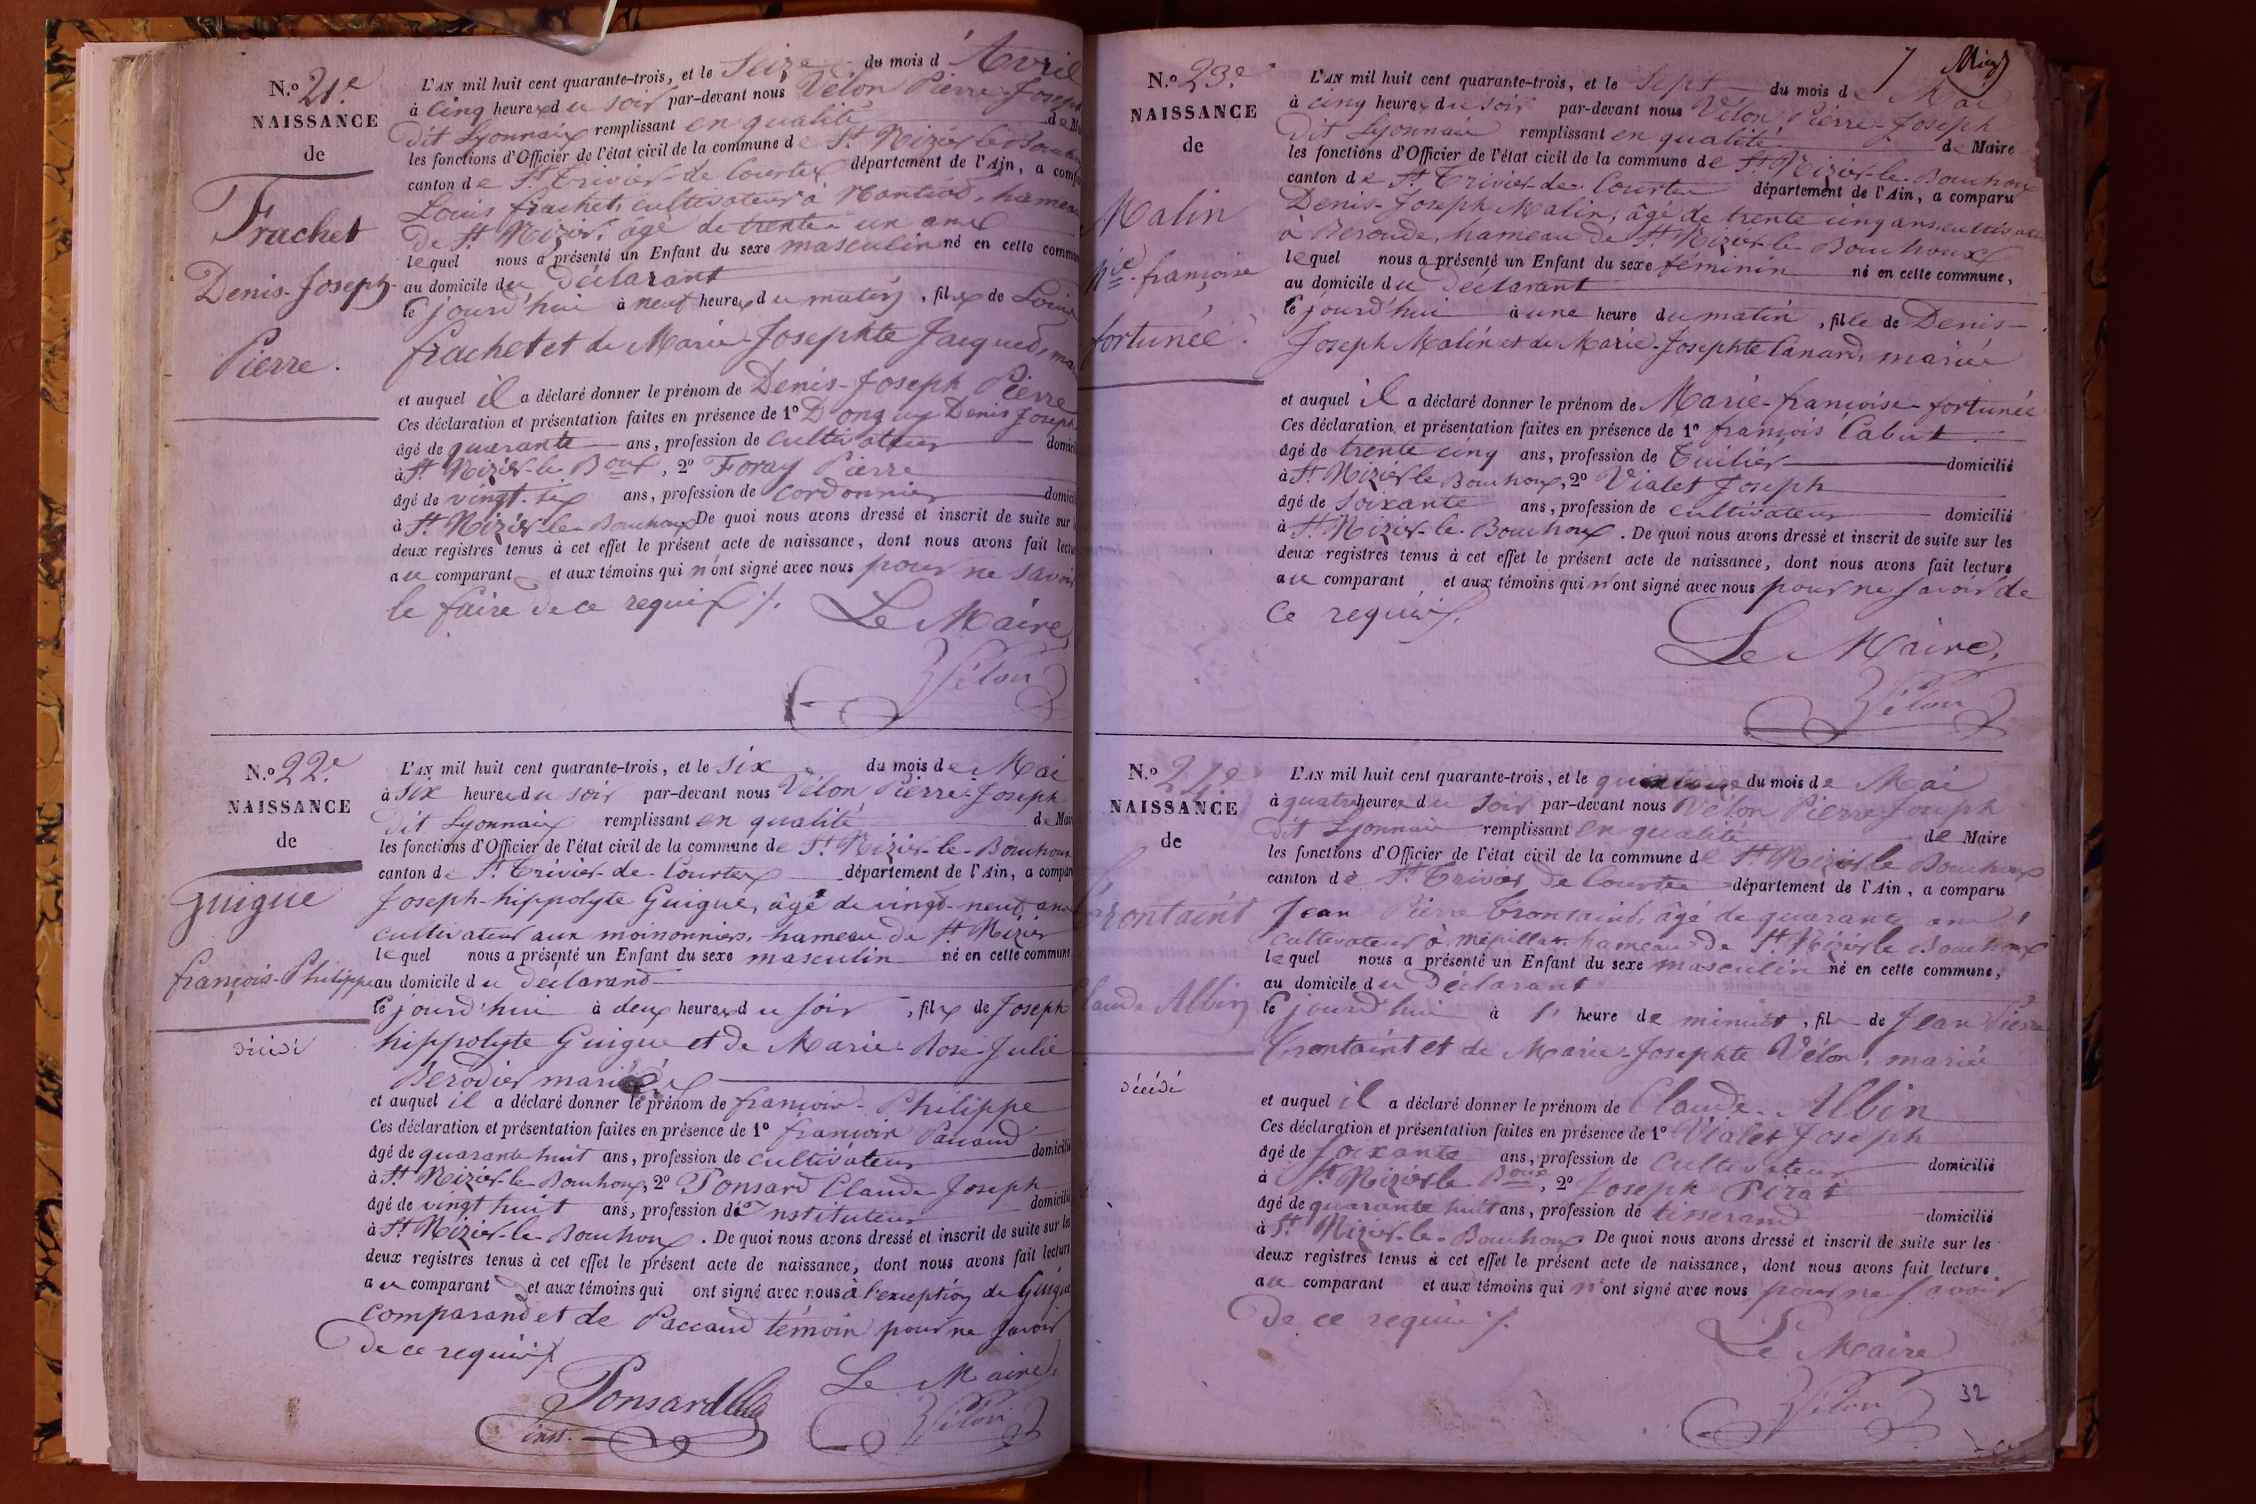 N.o 21.e
NAISSANCE
de
Frachet
Denis-Joseph-
Pierre.
L'AN mil huit cent quarante-trois, et le Seize du mois d'Avril
à cinq heures du soir par-devant nous Vélon Pierre-Joseph
dit Lyonnais remplissant en qualité de Ma
les fonctions d'Officier de l'état civil de la commune de St. Nizier-le-Bouchoux
canton de St. Trivier-de-Courtes département de l'Ain, a compa
Louis frachet, cultivateur à hameau
de St. Nizier, âgé de trente-un ans
lequel nous a présenté un Enfant du sexe masculin né en cette commun
au domicile du déclarant
le jourd'hui à neuf heures du matin, fils de Louis
frachet et de Marie-Josephte Jacquet, ma
et auquel il a déclaré donner le prénom de Denis-Joseph Pierre
Ces déclaration et présentation faites en présence de 1o Denis Joseph
âgé de quarante ans, profession de cultivateur domici
à St. Nizier-le-Boux, 2o Foray Pierre
âgé de vingt-six ans, profession de cordonnier domici
à St. Nizier-le-Bouchoux De quoi nous avons dressé et inscrit de suite sur
deux registres tenus à cet effet le présent acte de naissance, dont nous avons fait lectu
au comparant et aux témoins qui n'ont signé avec nous pour ne savoir
le faire de ce requis ./.
Le Maire,
Vélon
N.o 22.e
NAISSANCE
de
Guigue
françois-Philippe
décédé
L'AN mil huit cent quarante-trois, et le six du mois de Mai
à six heures du soir par-devant nous Vélon Pierre-Joseph
dit Lyonnais remplissant en qualité de Mai
les fonctions d'Officier de l'état civil de la commune de St. Nizier-le-Bouchoux
canton de St. Trivier-de-Courtes département de l'Ain, a compar
Joseph-hippolyte Guigue, âgé de vingt-neuf ans
cultivateur aux moinonniers, hameau de St. Nizier
lequel nous a présenté un Enfant du sexe masculin né en cette commune
au domicile du déclarant
le jourd'hui à deux heures du soir, fils de Joseph
hippolyte Guigue et de Marie-Rose-Julie
Berodier mariés
et auquel il a déclaré donner le prénom de françois-Philippe
Ces déclaration et présentation faites en présence de 1o françois Paccaud
âgé de quarante huit ans, profession de cultivateur domicilié
à St. Nizier-le-Bouchoux, 2o Ponsard Claude-Joseph
âgé de vingt huit ans, profession d'Instituteur domicilié
à St. Nizier-le-Bouchoux. De quoi nous avons dressé et inscrit de suite sur les
deux registres tenus à cet effet le présent acte de naissance, dont nous avons fait lecture
au comparant et aux témoins qui ont signé avec nous à l'exception de Guigue
comparant et de Paccaud témoin pour ne savoir
de ce requis ./.
Ponsard
inst.
Le Maire,
Vélon
7 Mai
N.o 23.e
NAISSANCE
de
Malin
Mie-françoise
fortunée.
L'AN mil huit cent quarante-trois, et le Sept du mois de Mai
à cinq heures du soir par-devant nous Vélon Pierre-Joseph
dit Lyonnais remplissant en qualité de Maire
les fonctions d'Officier de l'état civil de la commune de St. Nizier-le-Bouchoux
canton de St. Trivier-de-Courtes département de l'Ain, a comparu
Denis-Joseph Malin, âgé de trente cinq ans cultivateur
à Beroude, hameau de St. Nizier-le-Bouchoux
lequel nous a présenté un Enfant du sexe féminin né en cette commune,
au domicile du déclarant
le jourd'hui à une heure du matin, fille de Denis-
Joseph Malin et de Marie-Josephte Canard, mariés
et auquel il a déclaré donner le prénom de Marie-françoise-fortunée
Ces déclaration et présentation faites en présence de 1o françois Cabut
âgé de trente cinq ans, profession de Tuilier domicilié
à St. Nizier le Bouchoux, 2o Vialet Joseph
âgé de soixante ans, profession de cultivateur domicilié
à St. Nizier-le-Bouchoux. De quoi nous avons dressé et inscrit de suite sur les
deux registres tenus à cet effet le présent acte de naissance, dont nous avons fait lecture
au comparant et aux témoins qui n'ont signé avec nous pour ne savoir de
ce requis ./.
Le Maire,
Vélon
N.o 24.e
NAISSANCE
de
Trontaint
Claude Albin
décédé
L'AN mil huit cent quarante-trois, et le du mois de Mai
à quatre heures du soir par-devant nous Vélon Pierre-Joseph
dit Lyonnais remplissant en qualité de Maire
les fonctions d'Officier de l'état civil de la commune de St. Nizier le Bouchoux
canton de St. Trivier de Courtes département de l'Ain, a comparu
Jean Pierre Trontaint, âgé de quarante ans
cultivateur à mépillat hameau de St. Nizier le Bouchoux
lequel nous a présenté un Enfant du sexe masculin né en cette commune,
au domicile du Déclarant
le jourd'hui à l' heure de minuit, fil de Jean Pierre
Trontaint et de Marie-Josephte Vélon, mariés
et auquel il a déclaré donner le prénom de Claude-Albin
Ces déclaration et présentation faites en présence de 1o Vialet Joseph
âgé de soixante ans, profession de cultivateur domicilié
à St. Nizier le Boux, 2o Joseph Pirat
âgé de quarante huit ans, profession de tisserand domicilié
à St. Nizier-le-Bouchoux De quoi nous avons dressé et inscrit de suite sur les
deux registres tenus à cet effet le présent acte de naissance, dont nous avons fait lecture
au comparant et aux témoins qui n'ont signé avec nous pour ne savoir
de ce requis ./.
Le Maire
Vélon
32